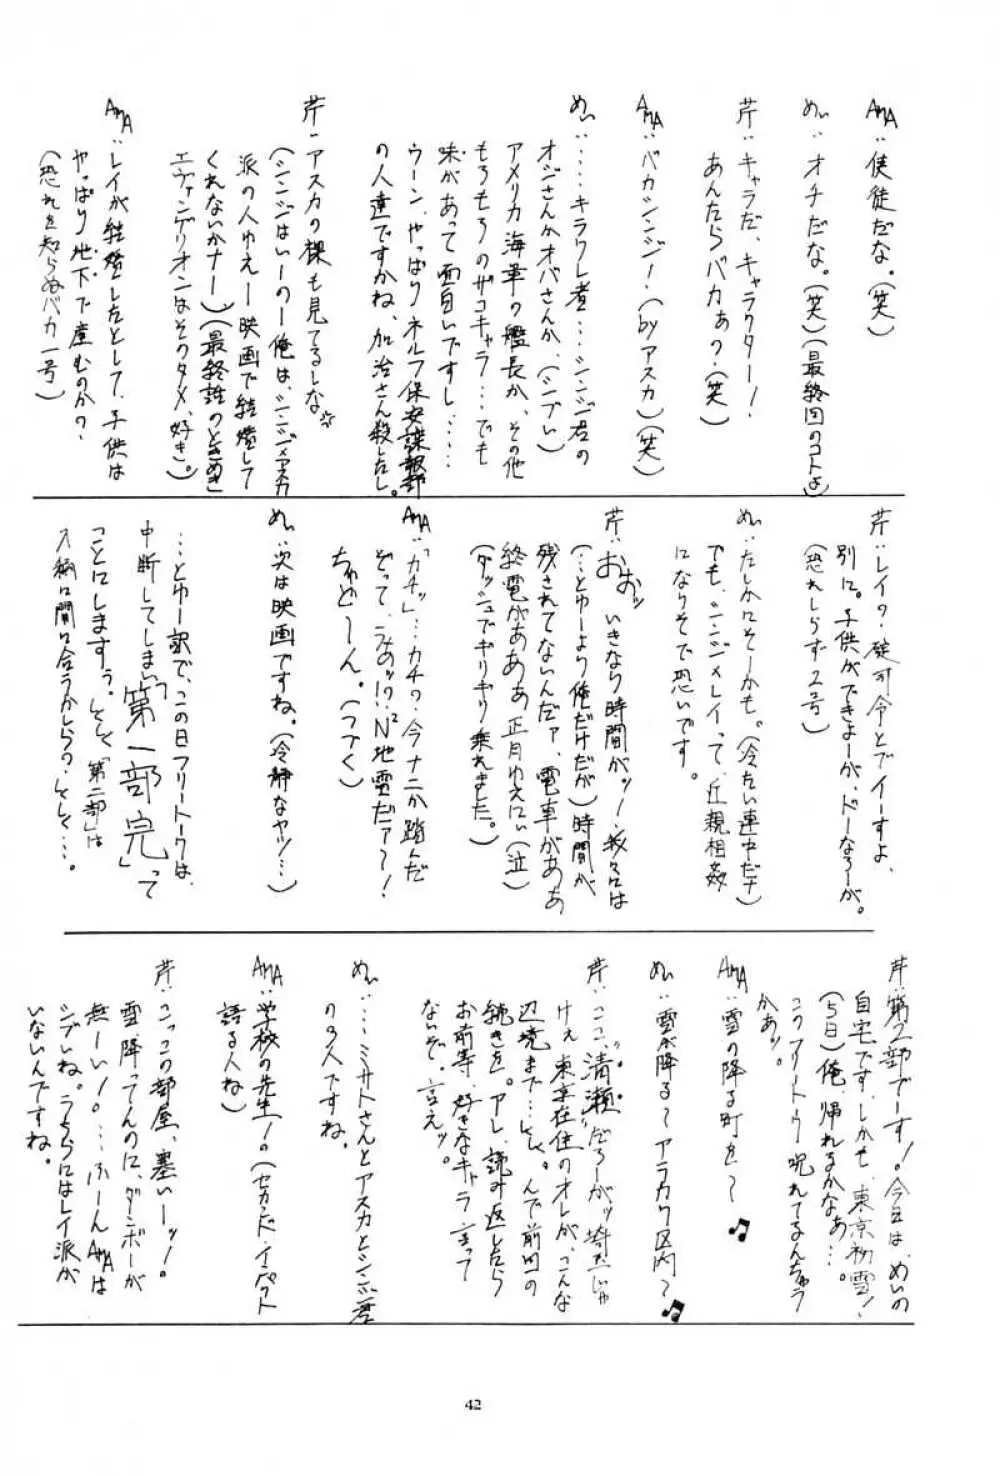 AMA:使徒だな。(笑)
めい:オチだな。(笑)(最終回のコトよ)
芹:キャラだ、キャラクター!
あんたらバカぁ?(笑)
AMA:バカシンジ!(byアスカ)(笑)
めい:…キラワレ者…シンジ君の
オジさんかオバさんか、(シブい)
アメリカ海軍の艦長か、その他
もろもろのザコキャラ…でも
味があって面白いですし……
ウーン、やっぱりネルフ保安諜報部
の人達ですかね、加治さん殺したし。
芹:アスカの裸も見てるしな
(シンジはいーのー俺は、シンジ×アスカ
派の人ゆえー映画で結婚して
くれないかナー)(最終話のときめき
エヴァンゲリオンはそのタメ、好き。)
AMA:レイが結婚したとして、子供は
やっぱり地下で産むのかの?
(恐れを知らぬバカ一号)
芹:レイの?碇司令とでイーすよ、
別に。子供ができよーが、ドーなろーが。
(恐れしらず2号)
めい:たしかにそーかも。(冷たい連中だナ)
でも、シンジ×レイって、近親相姦
になりそで恐いです。
芹:おおッ いきなり時間がッ!我々には
(…とゆーより俺だけだが)時間が
残されてないんだァ、電車がああ
終電がああぁ正月ゆえにぃ(泣)
(ダッシュでギリギリ乗れました。)
AMA:「カチッ」…カチ?今ナニか踏んだ
ぞって、うおッ!?N²地雷だァ〜!
ちゅどーん。(つづく)
めい:次は映画ですね。(冷静なヤツ!…)
…とゆー訳で、この日フリートークは、
中断してしまい「第一部完」って
ことにしますぅ。そして「第二部」は
入稿に間に合うかしらの?そして…。
芹:第2部でーす!。今日は、めいの
自宅です。しかも、東京初雪!
(5日)俺、帰れるかなぁ…。
このフリートーク呪れてるんちゃう
かぁッ。
AMA:雪の降る町を〜♫
めい:雪が降る〜アラカワ区内〜♫
芹:ココ、"清瀬"だろーがッ埼玉じゃ
けぇ東京在住のオレが、こんな
辺境まで…
んで前回の
続きを。アレ、読み返したら
お前等、好きなキャラ言って
ないぞ。言えッ。
めい:…ミサトさんとアスカとシンジ君
の3人ですね。
AMA:学校の先生!の(セカンド・インパクト
語る人ね)
芹:こっこの部屋、寒いーッ!。
雪、降ってんのに、ダンボーが
無ーい!。…ふーんAMAは
シブいね。うちらにはレイ派が
いないんですね。
42